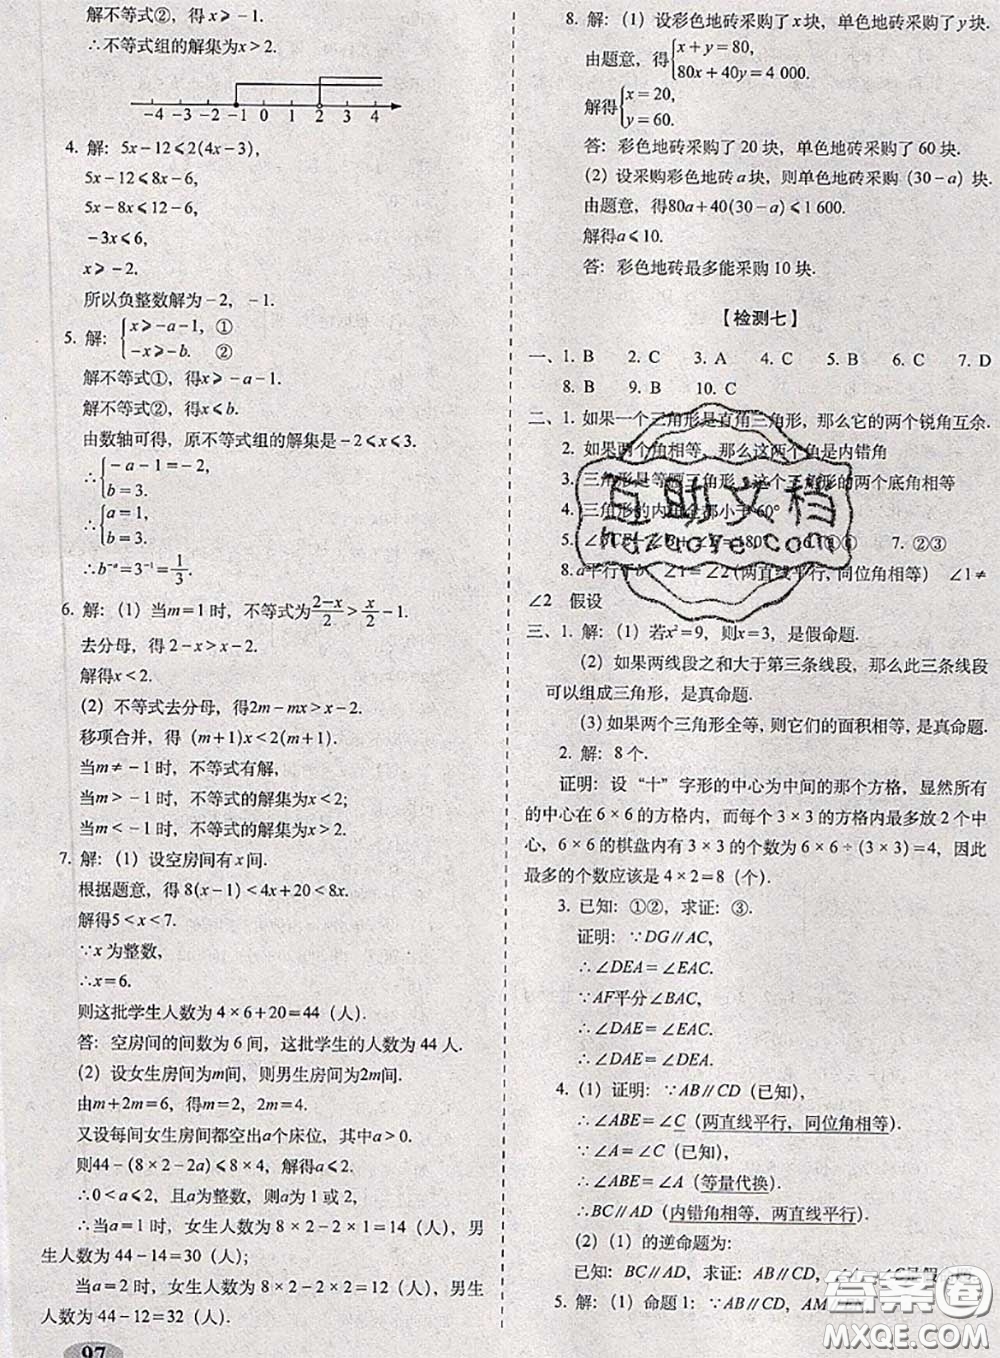 解不等式②，得x＞2.
∴不等式组的解集为x＞2.
−4 −3 −2 −1 0 1 2 3 4
4. 解：5x−12⩽2(4x−3),
5x−12⩽8x−6,
5x−8x⩽12−6,
−3x⩽6,
x⩾−2.
所以负整数解为−2，−1.
5. 解：{x⩾−a−1, ①
−x⩾−b. ②
解不等式①，得x⩾−a−1.
解不等式②，得x⩽b.
由数轴可得，原不等式组的解集是−2⩽x⩽3.
∴{−a−1=−2,
b=3.
∴{a=1,
b=3.
∴b⁻ᵃ=3⁻¹=1/3.
6. 解：（1）当m=1时，不等式为(2−x)/2＞x/2−1.
去分母，得2−x＞x−2.
解得x＜2.
（2）不等式去分母，得2m−mx＞x−2.
移项合并，得（m+1)x＜2(m+1).
当m≠−1时，不等式有解，
当m＞−1时，不等式的解集为x＜2；
当m＜−1时，不等式的解集为x＞2.
7. 解：（1）设空房间有x间.
根据题意，得8(x−1)＜4x+20＜8x.
解得5＜x＜7.
∵x为整数，
∴x=6.
则这批学生人数为4×6+20=44（人）.
答：空房间的间数为6间，这批学生的人数为44人.
（2）设女生房间为m间，则男生房间为2m间.
由m+2m=6，得m=2.
又设每间女生房间都空出a个床位，其中a＞0.
则44−(8×2−2a)⩽8×4，解得a⩽2.
∴0＜a⩽2，且a为整数，则a为1或2，
∴当a=1时，女生人数为8×2−2×1=14（人），男
生人数为44−14=30（人）；
当a=2时，女生人数为8×2−2×2=12（人），男生
人数为44−12=32（人）.
97
8. 解：（1）设彩色地砖采购了x块，单色地砖采购了y块.
由题意，得{x+y=80,
80x+40y=4 000.
解得{x=20,
y=60.
答：彩色地砖采购了20块，单色地砖采购了60块.
（2）设采购彩色地砖a块，则单色地砖采购（30−a）块.
由题意，得80a+40(30−a)⩽1 600.
解得a⩽10.
答：彩色地砖最多能采购10块.
【检测七】
一、1. B 2. C 3. A 4. C 5. B 6. C 7. D
8. B 9. B 10. C
二、1. 如果一个三角形是直角三角形，那么它的两个锐角互余.
2. 如果两个角相等，那么这两个角是内错角
3. 三角形是等 三角形 这个三角形的两个底角相等
4. 三角形的内角全都小于60°
5. 7. ②③
8. a平行于b ∠1=∠2（两直线平行，同位角相等） ∠1≠
∠2 假设
三、1. 解：（1）若x²=9，则x=3，是假命题.
（2）如果两线段之和大于第三条线段，那么此三条线段
可以组成三角形，是真命题.
（3）如果两个三角形全等，则它们的面积相等，是真命题.
2. 解：8个.
证明：设“十”字形的中心为中间的那个方格，显然所有
的中心在6×6的方格内，而每个3×3的方格内最多放2个中
心，6×6的棋盘内有3×3的个数为6×6÷(3×3)=4，因此
最多的个数应该是4×2=8（个）.
3. 已知：①②，求证：③.
证明：∵DG∥AC,
∴∠DEA=∠EAC.
∵AF平分∠BAC,
∴∠DAE=∠EAC.
∴∠DAE=∠DEA.
4.（1）证明：∵AB∥CD（已知），
∴∠ABE=∠C（两直线平行，同位角相等）.
∵∠A=∠C（已知），
∴∠ABE=∠A（等量代换）.
∴BC∥AD（内错角相等，两直线平行）.
（2）（1）的逆命题为：
已知：BC∥AD，求证：AB∥CD,
5. 解：（1）命题1：∵AB∥CD,
互助文档
hdzuoye.com
答案圈
MXQE.COM